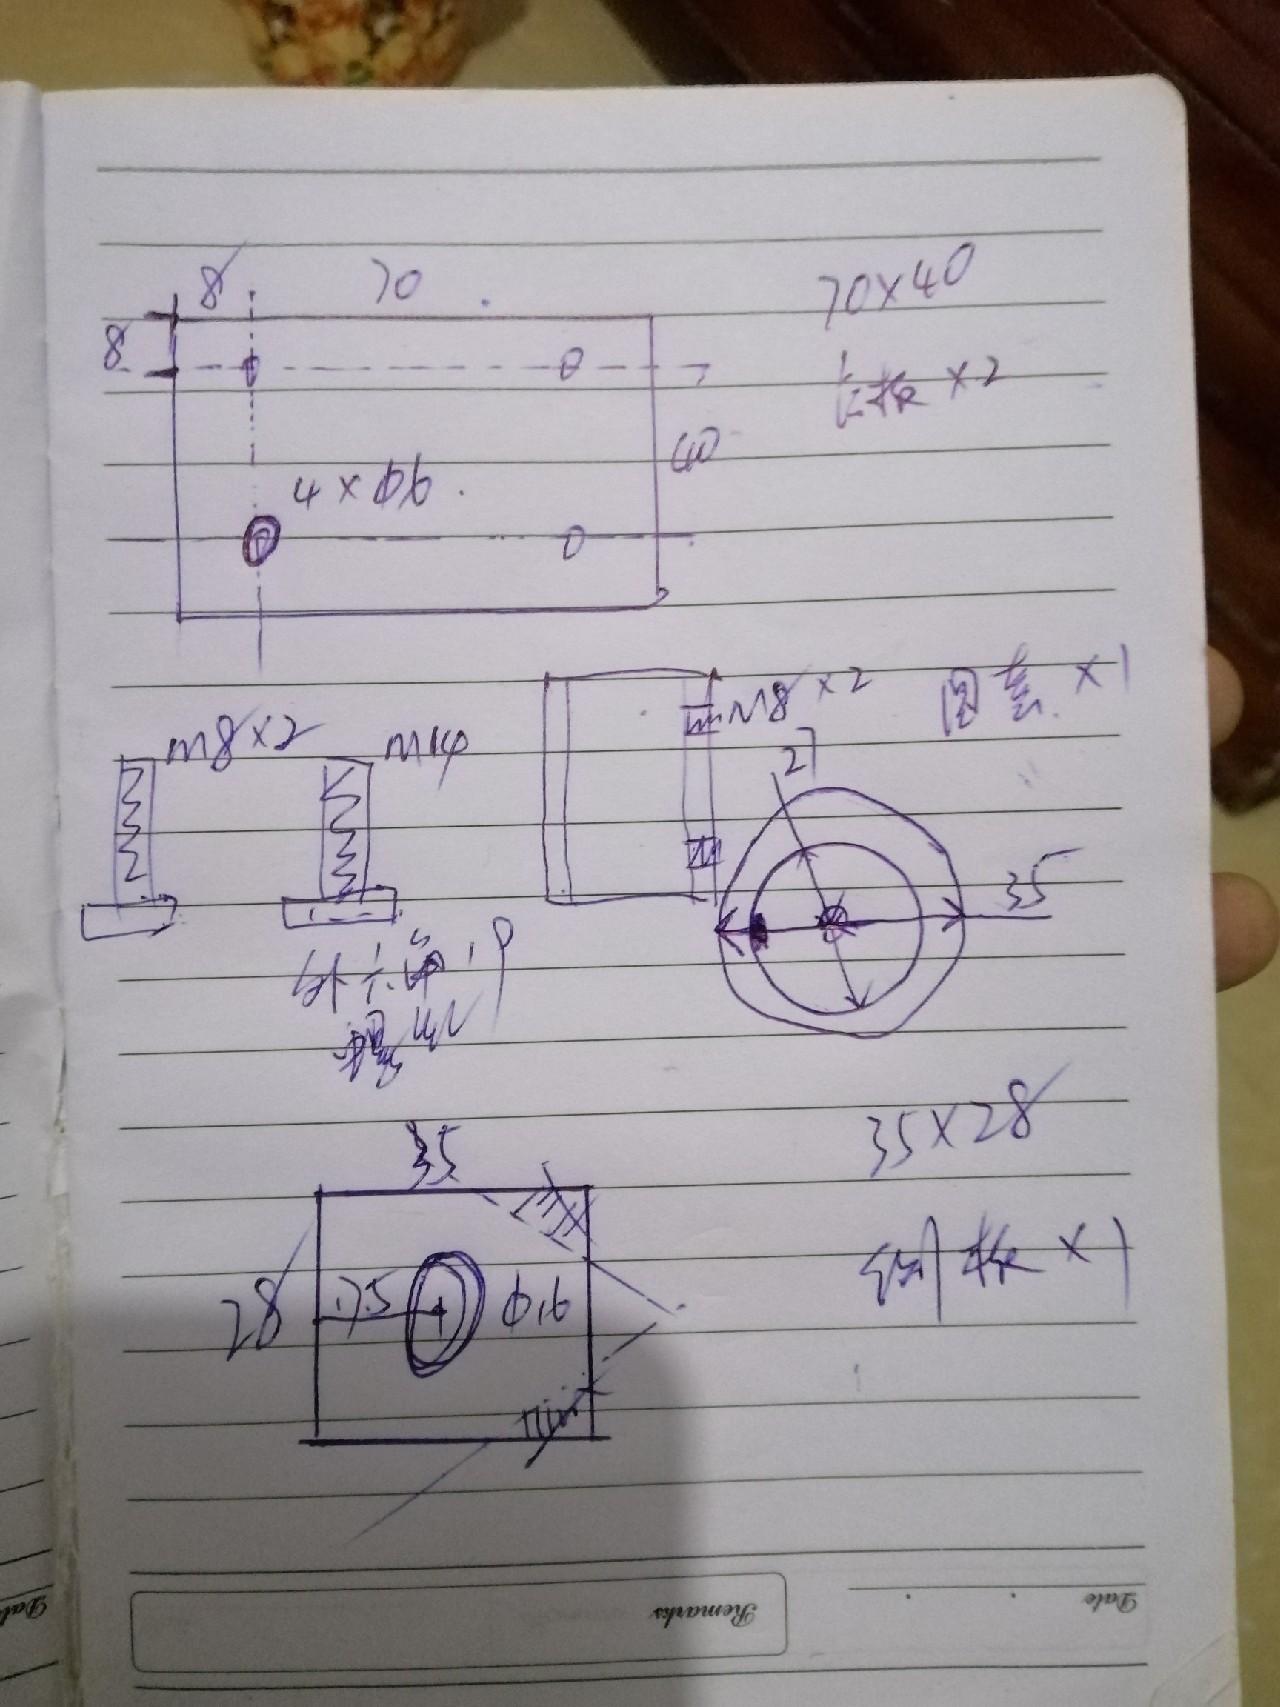 8 70
70×40
8
长板 ×2
40
4×φ6
圆套 ×1
M8×2
M8×2 M14
27
35
外六角
35
35×28
侧板 ×1
28 17.5 φ16
Remarks
Date